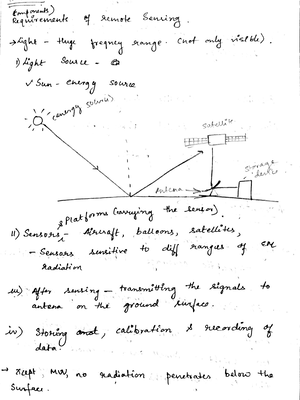 Components)
Requirements of remote Sensing.
→ Light - Huge freqncy range. (not only visible).
i) Light Source -
✓ Sun - energy source
(energy source)
Satellite
Storage device
Antena
& Platforms (carrying the sensor)
ii) Sensors - Aircraft, balloons, satellites,
- Sensors sensitive to diff ranges of EM
radiation
iii) After sensing - transmitting the signals to
antena on the ground surface.
iv) Storing, calibration & recording of
data.
→ Xcept MW, no radiation penetrates below the
Surface.